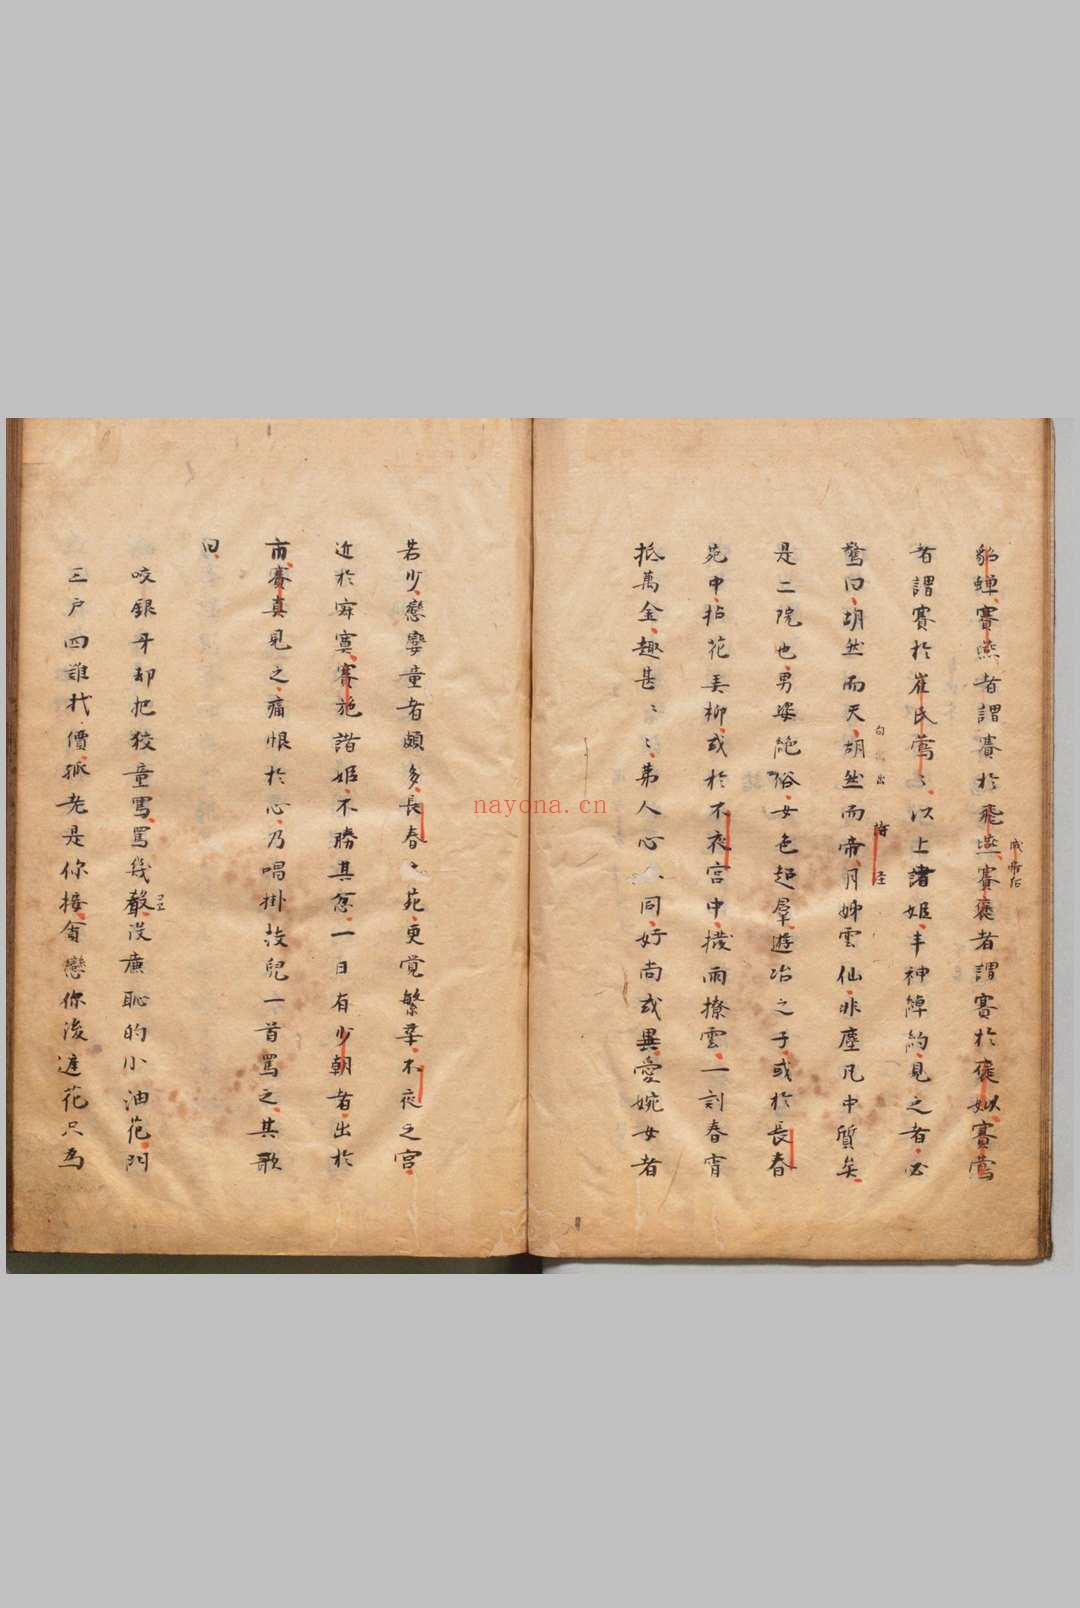 貂蟬賽燕者謂賽於飛燕賽褒者謂賽於褒姒賽鶯
成帝后
者謂賽於崔氏鶯〻以上諸姬丰神綽約見之者必
驚曰胡然而天胡然而帝月姊雲仙非塵凡中質矣
句出
詩經
是二院也男姿絶俗女色超羣遊冶之子或於長春
苑中拈花弄柳或於不夜宮中撥雨撩雲一刻春宵
抵萬金趣甚〻〻苐人心同好尚或異愛婉女者
若少戀孌童者頗多長春〻苑更覚繁華不夜之宮
近於寂寞賽施諸姬不勝其忿一日有少朝者出於
市賽真見之痛恨於心乃唱掛技兒一首罵之其歌
曰
咬銀牙却把狡童罵罵幾聲没廉恥的小油花門
コエ
三户四誰代價孤老是你接貪戀你後遮花只為
nayona.cn